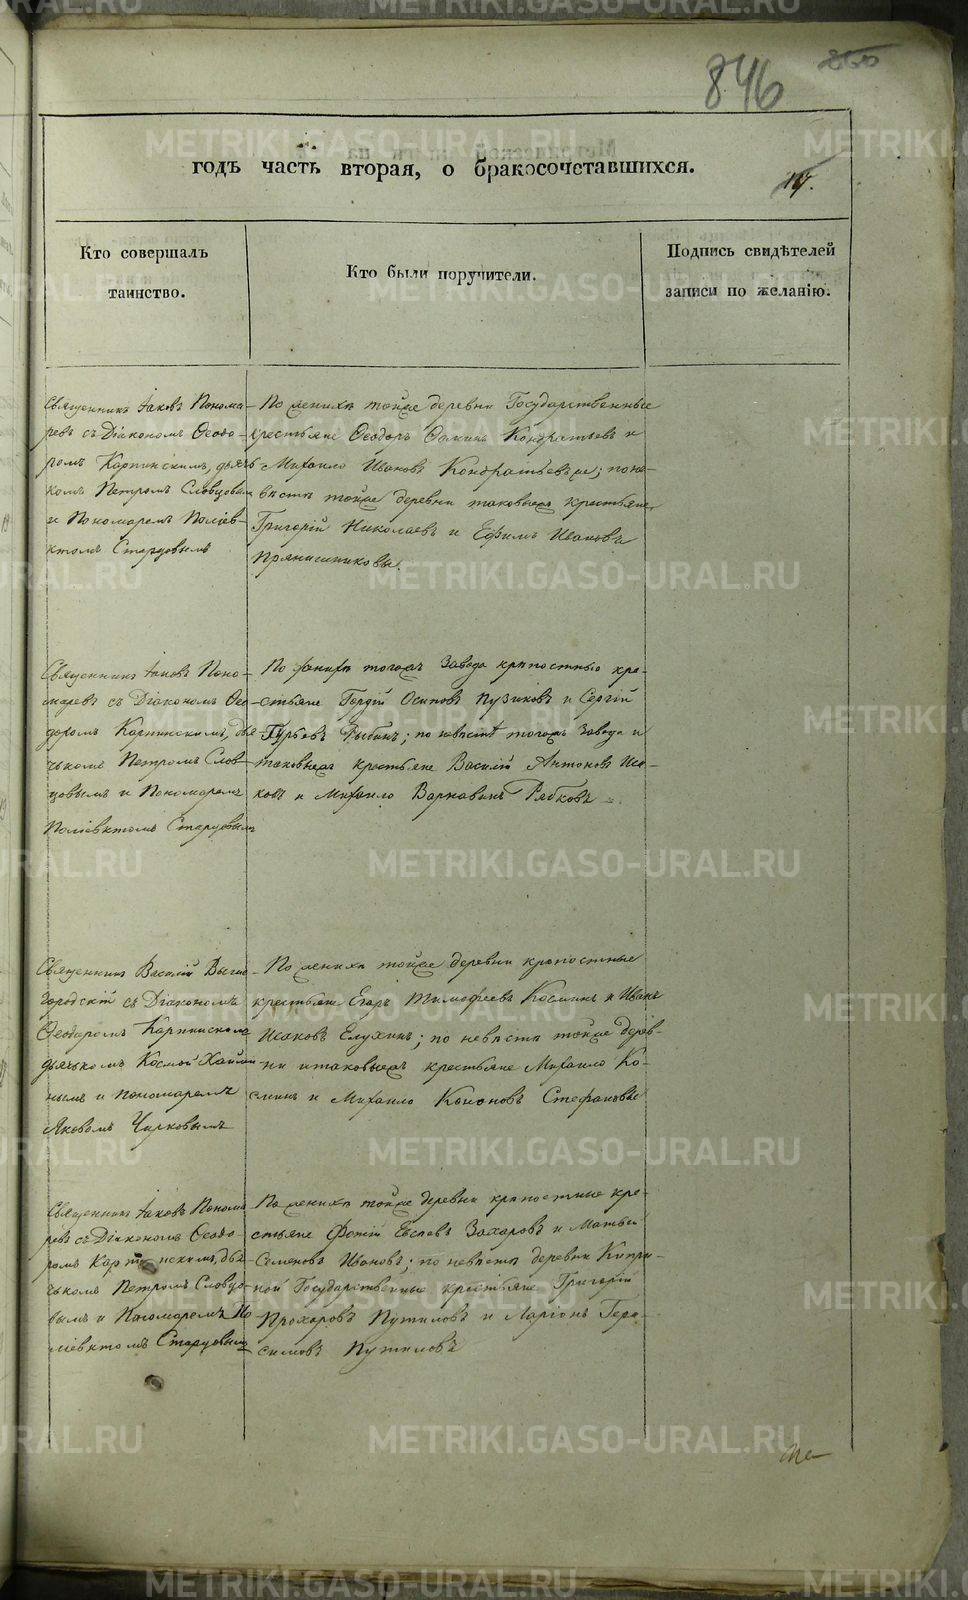 846
годъ часть вторая, о бракосочетавшихся.
Кто совершалъ
таинство.
Кто были поручители.
Подпись свидѣтелей
записи по желанію.
Священникъ Іаковъ Понома-
ревъ съ Діакономъ Ѳеодо-
ромъ Карпинскимъ, дьяч-
комъ Петромъ Словцовым
и Пономаремъ Поліев-
ктомъ Старцовымъ
По женихѣ тойже деревни Государственные
крестьяне Ѳеодоръ Ѳоминъ Кондратьевъ и
Михайло Ивановъ Кондратьевъ же; по не-
вѣстѣ тойже деревни таковыежъ крестьяне
Григорій Николаевъ и Ефимъ Ивановъ
Прянишниковы.
Священникъ Іаковъ Поно-
маревъ съ Діакономъ Ѳео-
доромъ Карпинскимъ, дья-
чькомъ Петромъ Слов-
цовымъ и Пономаремъ
Поліевктомъ Старцовымъ
По женихѣ тогожъ Завода крѣпостные кре-
стьяне Гордій Осиповъ Пузиковъ и Сергій
Гурьевъ Рыбинъ; по невѣстѣ тогожъ Завода и
таковыежъ крестьяне Василій Антоновъ Иса-
ковъ и Михайло Варнавинъ Рябковъ
Священникъ Василій Выше-
городскій съ Діакономъ
Ѳеодоромъ Карпинскимъ
дьячькомъ Космой
нымъ и пономаремъ
Яковомъ Чирковымъ
По женихѣ тойже деревни крѣпостные
крестьяне Егоръ Тимофеевъ Косминъ и Иванъ
Исаковъ Елухинъ; по невѣстѣ тойже дерев-
ни и таковыежъ крестьяне Михайло Ко-
сминъ и Михайло Кононовъ Стефановы
Священникъ Іаковъ Понома
ревъ съ Діакономъ Ѳеодо-
ромъ Карпинскимъ, дья-
чькомъ Петромъ Словцо-
вымъ и Пономаремъ По-
ліевктомъ Старцовымъ
По женихѣ тойже деревни крѣпостные кре-
стьяне Фотій Евсеевъ Захаровъ и Матвей
Семеновъ Ивановъ; по невѣстѣ деревни Кипри-
ной Государственные крестьяне Григорій
Прохоровъ Путиловъ и Ларіонъ Гера-
симовъ Путиловъ
METRIKI.GASO-URAL.RU